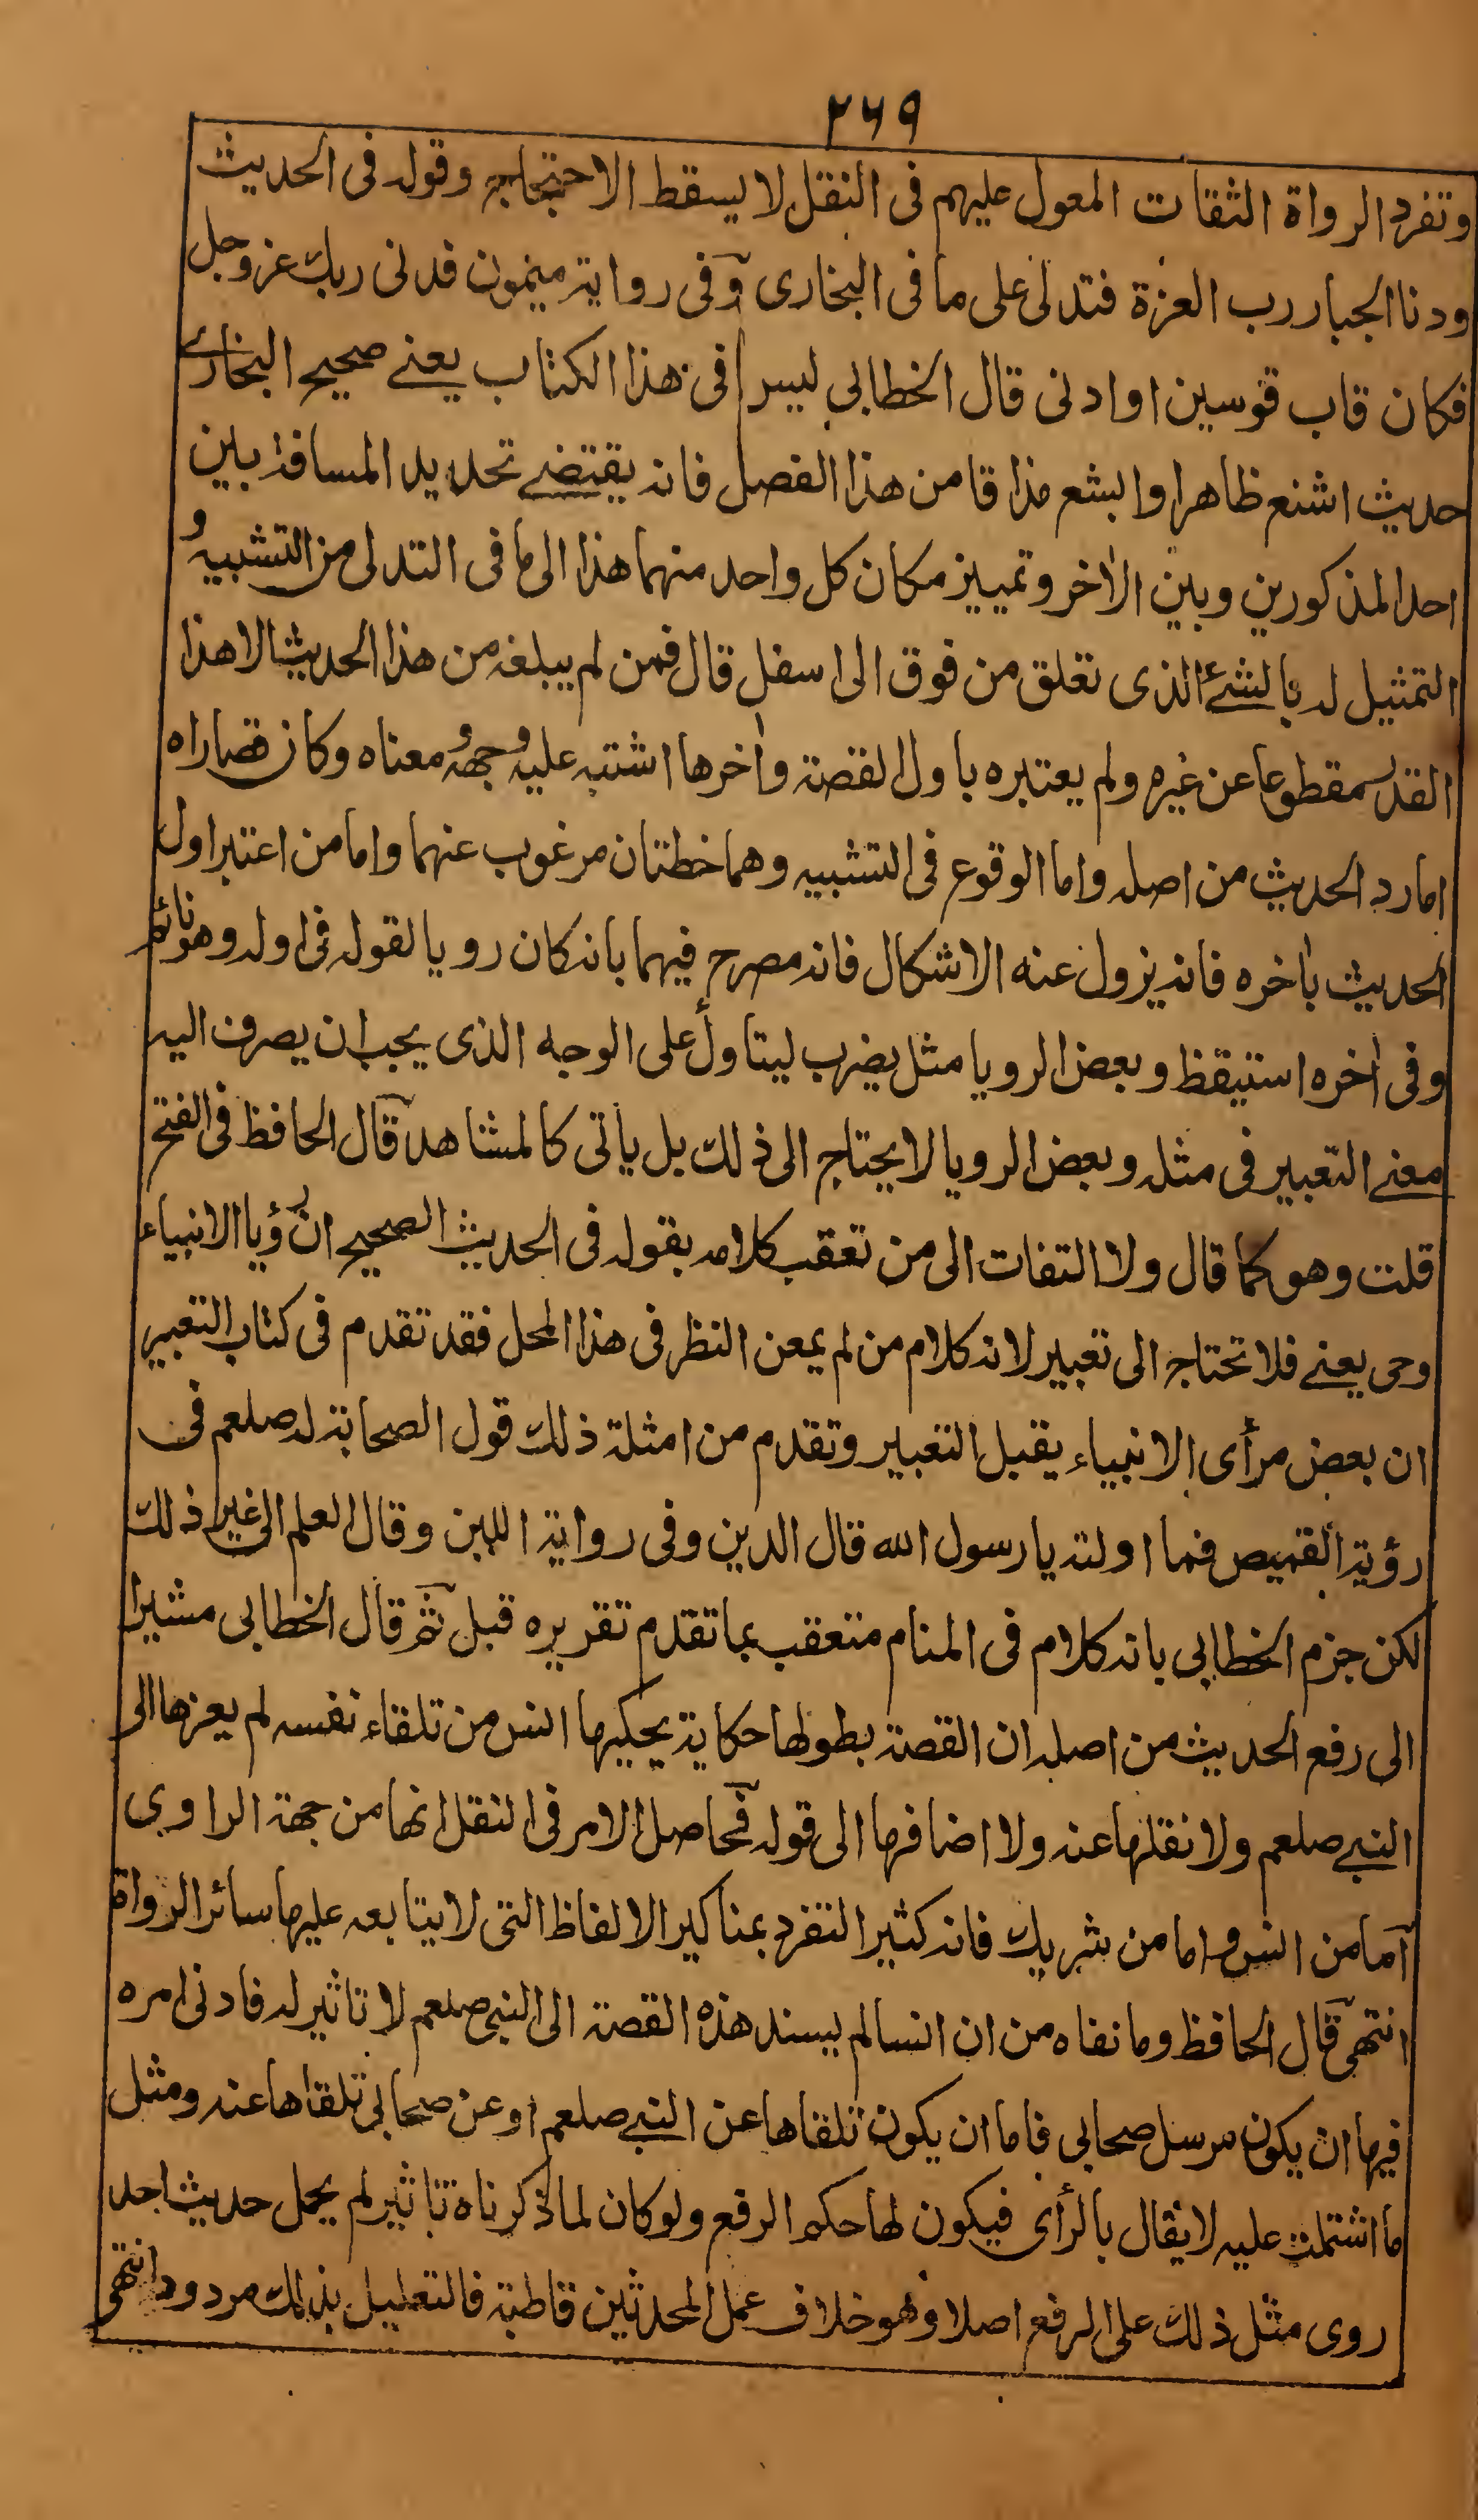 ٢٦٩
وتفرد الرواة الثقات المعول عليهم فى النقل لا يسقط الاحتجاج به وقوله فى الحديث
ودنا الجبار رب العزة فتدلى على ما فى البخارى وفى رواية ميمون فدنى ربك عز وجل
فكان قاب قوسين او ادنى قال الخطابى ليس فى هذا الكتاب يعنے صحيح البخارے
حديث اشنع ظاهرا وابشع مذاقا من هذا الفصل فانه يقتضے تحديد المسافة بين
احد المذكورين وبين الاخر وتمييز مكان كل واحد منهما هذا الى ما فى التدلى من التشبيه و
التمثيل له بالشئ الذى تعلق من فوق الى اسفل قال فمن لم يبلغه من هذا الحديث الا هذا
القدر مقطوعا عن غيره ولم يعتبره باول القصة واخرها اشتبه عليه وجهه ومعناه وكان قصاراه
اما رد الحديث من اصله واما الوقوع فى التشبيه وهما خطتان مرغوب عنهما واما من اعتبر اول
الحديث باخره فانه يزول عنه الاشكال فانه مصرح فيهما بانه كان رويا لقوله فى اوله وهو نائم
وفى اخره استيقظ وبعض الرويا مثل يضرب ليتاول على الوجه الذى يجب ان يصرف اليه
معنے التعبير فى مثله وبعض الرويا لا يحتاج الى ذلك بل يأتى كالمشاهد قال الحافظ فى الفتح
قلت وهو كما قال ولا التفات الى من تعقب كلامه بقوله فى الحديث الصحيح ان رؤيا الانبياء
وحى يعنے فلا تحتاج الى تعبير لانه كلام من لم يمعن النظر فى هذا المحل فقد تقدم فى كتاب التعبير
ان بعض مرأى الانبياء يقبل التعبير وتقدم من امثلة ذلك قول الصحابة له صلعم فى
رؤية القميص فما اولته يا رسول الله قال الدين وفى رواية اللبن وقال العلم الى غير ذلك
لكن جزم الخطابى بانه كلام فى المنام متعقب بما تقدم تقريره قبل ثم قال الخطابى مشيرا
الى رفع الحديث من اصله ان القصة بطولها حكاية يحكيها انس من تلقاء نفسه لم يعزها الى
النبے صلعم ولا نقلها عنه ولا اضافها الى قوله فحاصل الامر فى النقل انها من جهة الراوى
اما من انس واما من شريك فانه كثير التفرد بمناكير الالفاظ التى لا يتابعه عليها سائر الرواة
انتهى قال الحافظ وما نفاه من ان انسا لم يسند هذه القصة الى النبى صلعم لا تاثير له فادنى امره
فيها ان يكون مرسل صحابى فاما ان يكون تلقاها عن النبے صلعم او عن صحابى تلقاها عنه ومثل
ما اشتملت عليه لا يقال بالرأى فيكون لها حكم الرفع ولو كان لما ذكرناه تاثير لم يحمل حديث احد
روى مثل ذلك على الرفع اصلا وهو خلاف عمل المحدثين قاطبة فالتعليل بذلك مردود انتهى